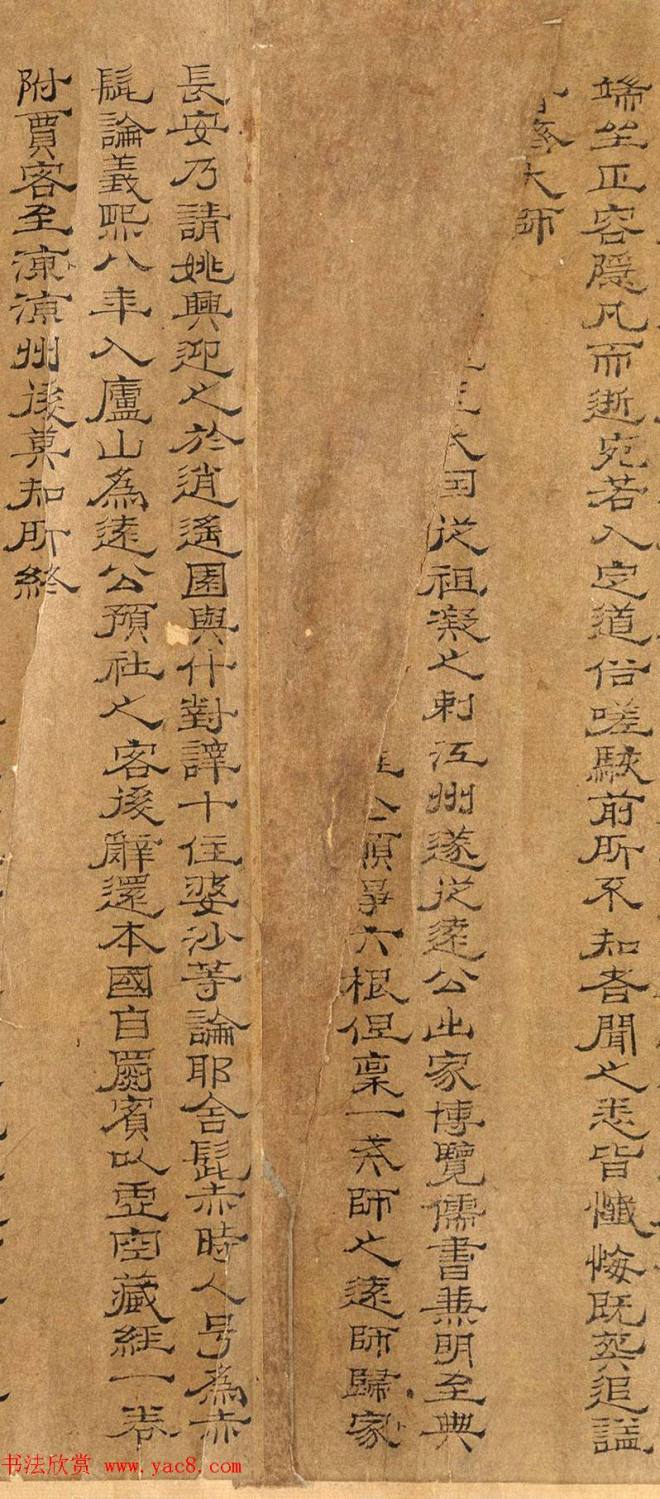 端坐正容隱凡而逝宛若入定道俗嗟駭前所不知者聞之悉皆懺悔既葬追謚
大師
大国从祖凝之刺江州遂从遠公出家博覽儒書兼明至典
頃畢六根但稟一
師之遠師歸家
長安乃請姚興迎之於逍遙園與什對譯十住婆沙等論耶舍髭赤時人号為赤
髭論義熙八年入廬山為遠公預社之客後辭還本國自罽賓以虛空藏經一卷
附賈客至涼州後莫知所終
书法欣赏 www.yac8.com